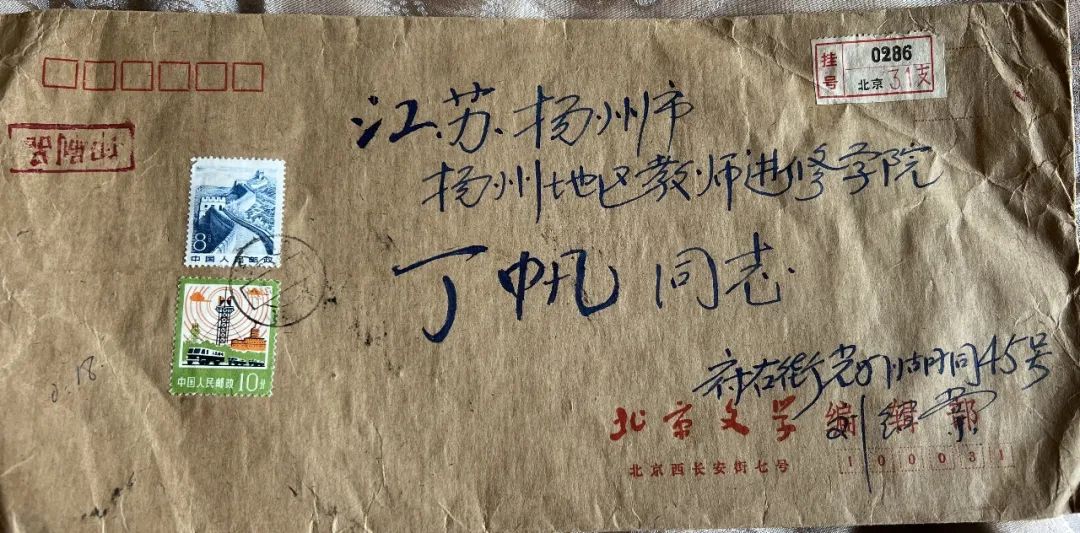 挂号 0286
北京 31支
印刷品
江苏扬州市
扬州地区教师进修学院
丁帆同志
8分
中国人民邮政
中国人民邮政 10分
府右街 45号
北京文学编辑部
北京西长安街七号 100031